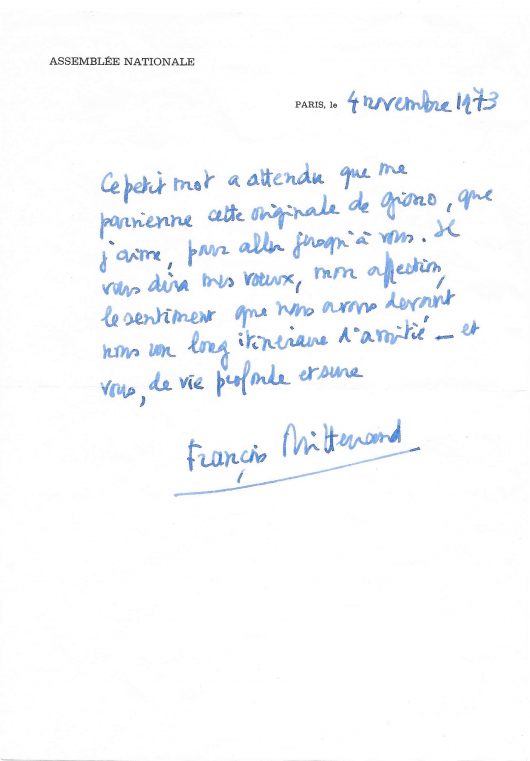 ASSEMBLÉE NATIONALE
PARIS, le 4 novembre 1973
Ce petit mot a attendu que me
parvienne cette originale de Giono, que
j'aime, pour aller jusqu'à vous. Il
vous dira mes vœux, mon affection,
le sentiment que nous avons devant
nous un long itinéraire d'amitié — et
vous, de vie profonde et sûre
François Mitterrand